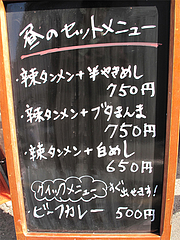 昼のセットメニュー
・辣タンメン+半やきめし
750円
・辣タンメン+ブタまんま
750円
・辣タンメン+白めし
650円
クイックメニュー すぐ出せます!
・ビーフカレー 500円